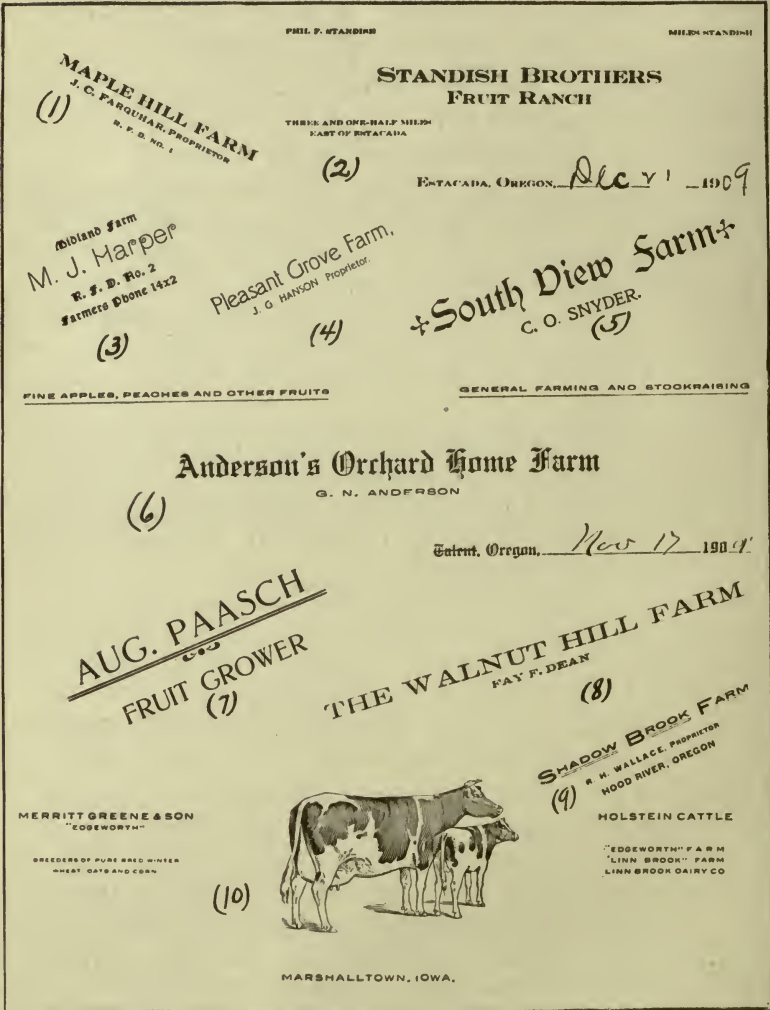 PHIL F. STANDISH
MILES STANDISH
MAPLE HILL FARM
J. C. FARQUHAR, PROPRIETOR
R. F. D. NO. 1
(1)
STANDISH BROTHERS
FRUIT RANCH
THREE AND ONE-HALF MILES
EAST OF ESTACADA
(2)
ESTACADA, OREGON, Dec 21 1909
Midland Farm
M. J. Harper
R. F. D. No. 2
Farmers Phone 14x2
(3)
Pleasant Grove Farm,
J. G HANSON Proprietor.
(4)
South View Farm
C. O. SNYDER.
(5)
FINE APPLES, PEACHES AND OTHER FRUITS
GENERAL FARMING AND STOCKRAISING
Anderson's Orchard Home Farm
G. N. ANDERSON
(6)
Talent, Oregon, Nov 17 190
AUG. PAASCH
FRUIT GROWER
(7)
THE WALNUT HILL FARM
FAY F. DEAN
(8)
SHADOW BROOK FARM
R. H. WALLACE, PROPRIETOR
HOOD RIVER, OREGON
(9)
MERRITT GREENE & SON
"EDGEWORTH"
BREEDERS OF PURE BRED WINTER
WHEAT OATS AND CORN
HOLSTEIN CATTLE
"EDGEWORTH" FARM
"LINN BROOK" FARM
LINN BROOK DAIRY CO
(10)
MARSHALLTOWN, IOWA,